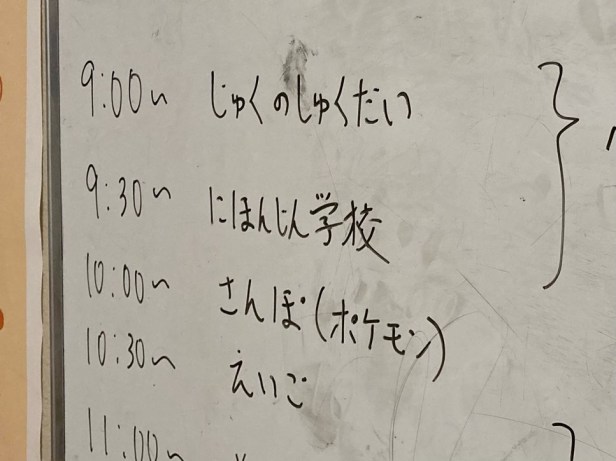 9:00〜 じゅくのしゅくだい
9:30〜 にほんじん学校
10:00〜 さんぽ(ポケモン)
10:30〜 えいご
11:00〜